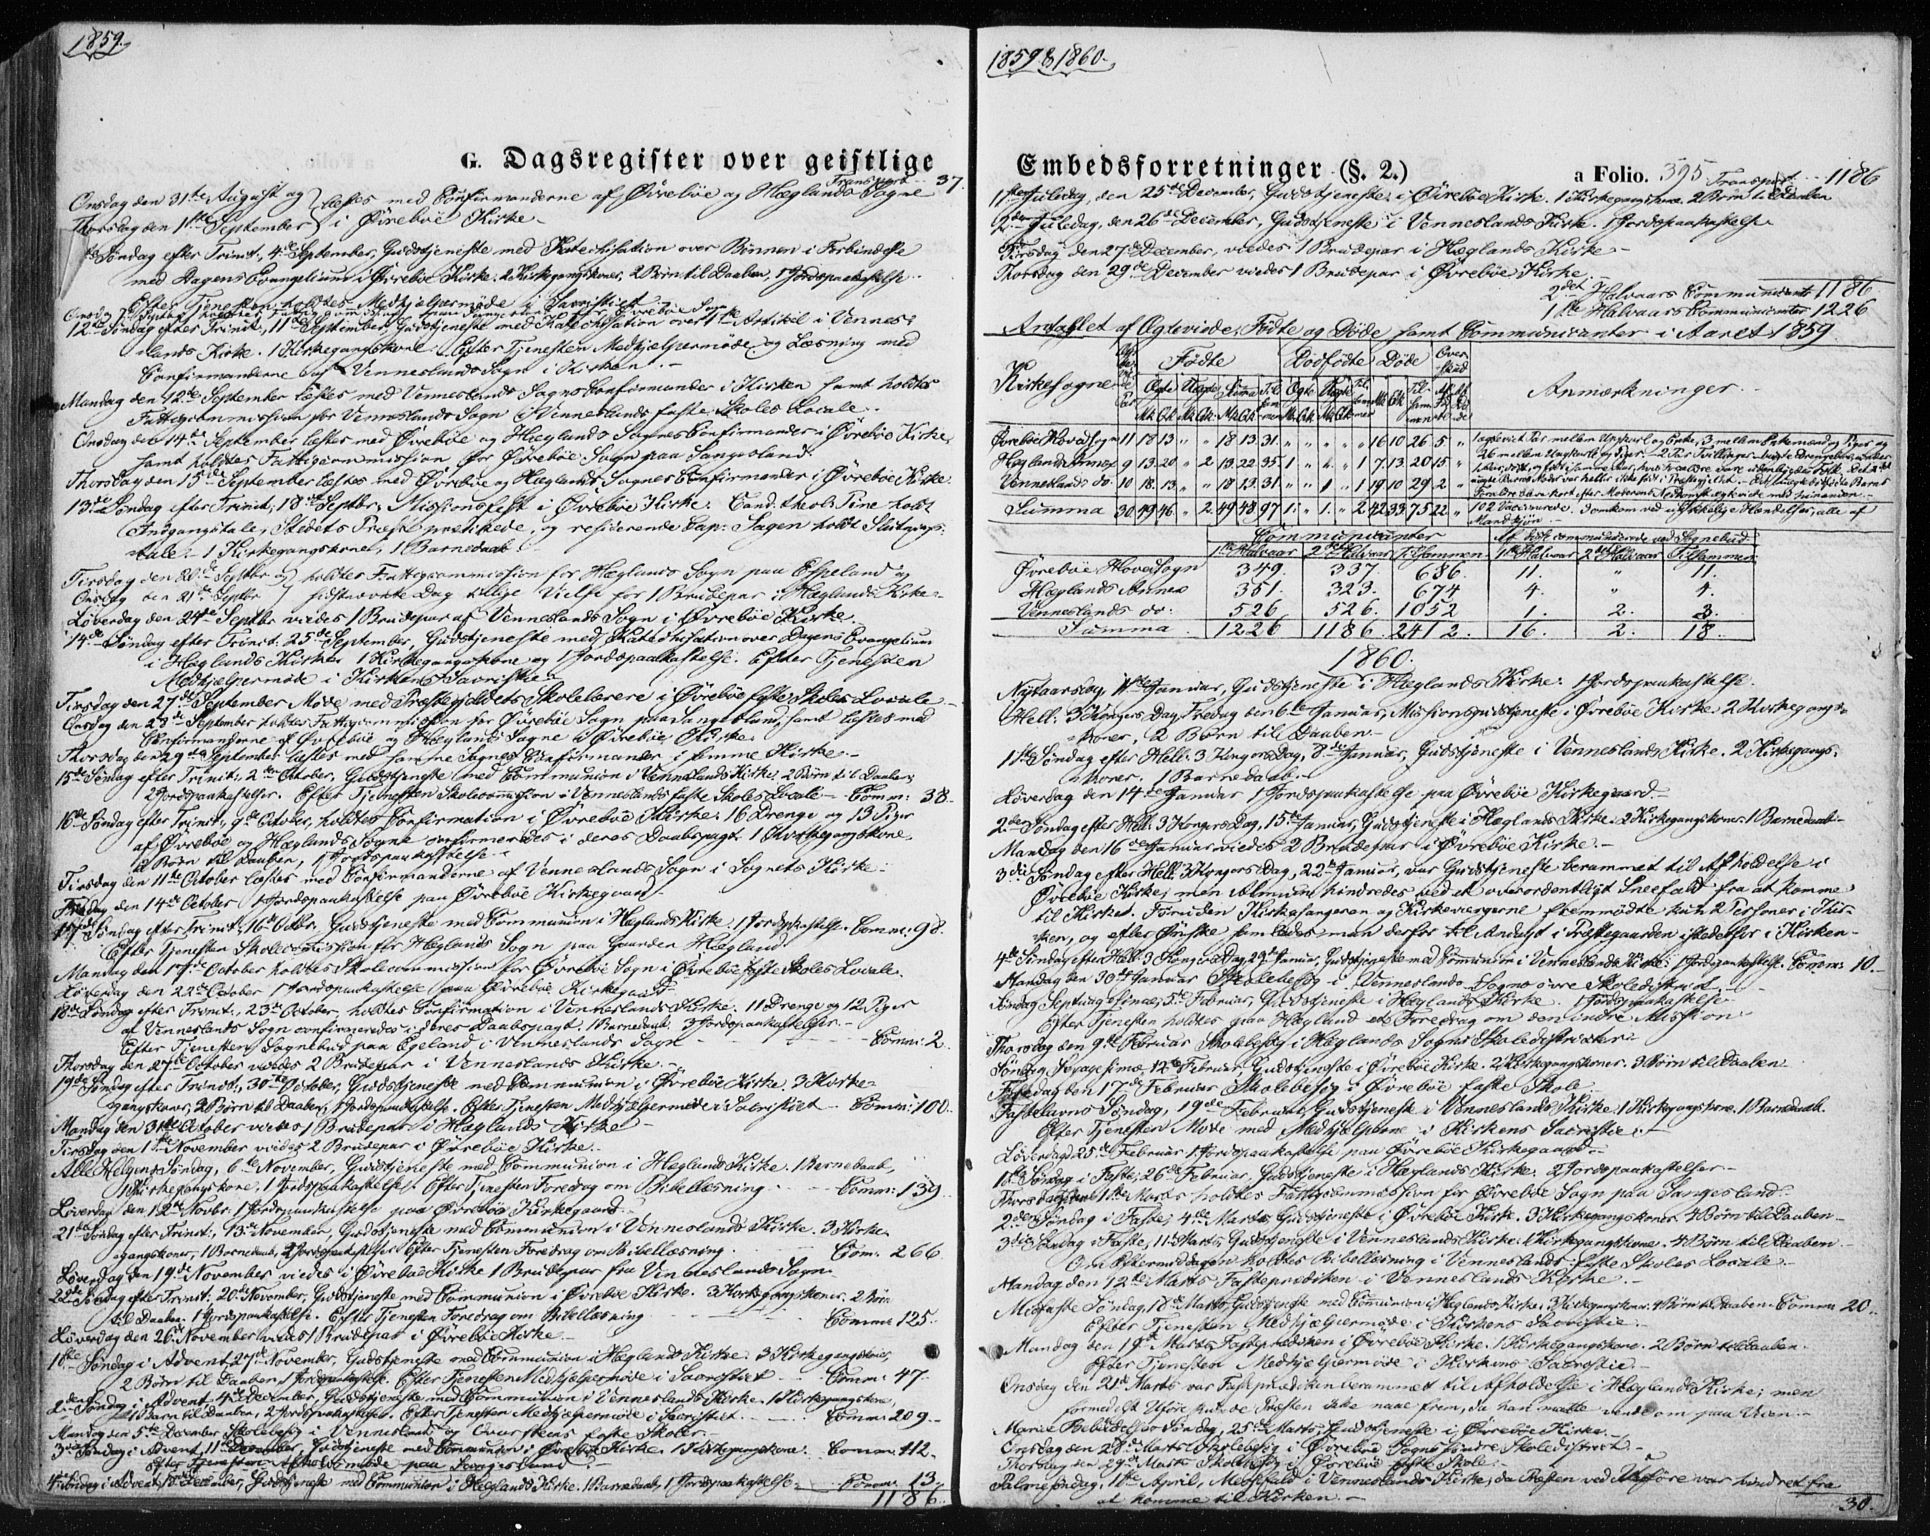 1859.
G. Dagsregister over geistlige
Transport 37.
Onsdag den 31te August og } læstes med Confirmanderne af Øvrebøe og Hæglands Sogne
Thorsdag den 1ste September } i Øvrebøe Kirke.
Søndag efter Trinit., 4de September, Gudstjeneste med Katechisation over Bønnen i Forbindelse
med Dagens Evangelium i Øvrebøe Kirke. 2 Kirkegangskoner, 2 Børn til Daaben, 1 Jordspaakastelse.
Efter Tjenesten holdtes Medhjelpermøde i Sacristiet.
12te Søndag efter Trinit., 11te September, Gudstjeneste med Katechisation over 1ste Artikel i Vennes-
lands Kirke. 1 Kirkegangskone. Efter Tjenesten Medhjelpermøde og Læsning med
Confirmanderne af Venneslands Sogn i Kirken.
Mandag den 12te September læstes med Vennesland Sogns Confirmander i Kirken samt holdtes
Fattigcommission for Vennesland Sogn i Venneslands faste Skoles Locale.
Onsdag den 14de September læstes med Øvrebøe og Hæglands Sognes Confirmander i Øvrebøe Kirke,
samt holdtes Fattigcommission for Øvrebøe Sogn paa Sangesland.
Thorsdag den 15de September læstes med Øvrebøe og Hæglands Sognes Confirmander i Øvrebøe Kirke.
13de Søndag efter Trinit., 18de Septbr., Missionsfest i Øvrebøe Kirke. Cand. theol. Tine holdt
Indgangstale, Stedets Præst prædikede, og residerende Cap: Sagen holdt Slutnings-
tale. 1 Kirkegangskone, 1 Barnedaab
Tirsdag den 20de Septbr og } holdtes Fattigcommission for Hæglands Sogn paa Espeland og
Onsdag den 21de Septbr } sidstnævnte Dag tillige Vielse for 1 Brudepar i Hæglands Kirke.
Løverdag den 24de Septbr. viedes 1 Brudepar af Venneslands Sogn i Øvrebøe Kirke.
14de Søndag efter Trinit. 25de September, Gudstjeneste med Katechisation over Dagens Evangelium
i Hæglands Kirke. 1 Kirkegangskone og 1 Jordspaakastelse. Efter Tjenesten
Medhjelpermøde i Kirkens Sacristie.
Tirsdag den 27de September Møde med Præstegjeldets Skolelærere i Øvrebøe faste Skoles Locale
Onsdag den 28de September holdtes Fattigcommission for Øvrebøe Sogn paa Sangesland, samt læstes med
Confirmanderne af Øvrebøe og Hæglands Sogne i Øvrebøe Kirke.
Thorsdag den 29de September læstes med samme Sognes Confirmander i samme Kirke.
15de Søndag efter Trinit., 2den October, Gudstjeneste med Communion i Venneslands Kirke. 2 Børn til Daaben,
2 Jordspaakastelser. Efter Tjenesten Skolecommission i Venneslands faste Skoles Locale - Comm: 38.
16de Søndag efter Trinit., 9de October, holdtes Confirmation i Øvrebøe Kirke. 16 Drenge og 13 Piger
af Øvrebøe og Hæglands Sogne confirmeredes i deres Daabspagt. 1 Kirkegangskone,
2 Børn til Daaben, 1 Jordspaakastelse.
Tirsdag den 11te October læstes med Confirmanderne af Venneslands Sogn i Sognets Kirke.
Fredag den 14de October 1 Jordspaakastelse paa Øvrebøe Kirkegaard.
17de Søndag efter Trinit., 16de Octbr., Gudstjeneste med Communion i Hæglands Kirke. 1 Jordspaakastelse. Comm: 98.
Efter Tjenesten Skolecommission for Hæglands Sogn paa Gaarden Hægland.
Mandag den 17de October holdtes Skolecommission for Øvrebøe Sogn i Øvrebøe faste Skoles Locale.
Løverdag den 22de October 1 Jordspaakastelse paa Øvrebøe Kirkegaard.
18de Søndag efter Trinit., 23de October, holdtes Confirmation i Venneslands Kirke. 11 Drenge og 12 Piger
af Venneslands Sogn confirmeredes i deres Daabspagt. 1 Barnedaab. 3 Jordspaakastelser.
Efter Tjenesten Sognebud paa Egeland i Venneslands Sogn - Comm: 2.
Thorsdag den 27de October viedes 2 Brudepar i Venneslands Kirke.
19de Søndag efter Trinit., 30te October, Gudstjeneste med Communion i Øvrebøe Kirke. 3 Kirke-
gangskoner, 3 Børn til Daaben, 1 Jordspaakastelse. Efter Tjenesten Medhjelpermøde i Sacristiet. Comm: 100.
Mandag den 31te October viedes 1 Brudepar i Hæglands Kirke.
Tirsdag den 1ste November viedes 2 Brudepar i Øvrebøe Kirke.
Alle Helgens Søndag, 6te November, Gudstjeneste med Communion i Hæglands Kirke. 1 Barnedaab,
1 Kirkegangskone, 1 Jordspaakastelse. Efter Tjenesten Foredrag om Bibellæsning - Comm: 139.
Løverdag den 12te Novbr. 1 Jordspaakastelse paa Øvrebøe Kirkegaard.
21de Søndag efter Trinit., 13de November, Gudstjeneste med Communion i Venneslands Kirke. 3 Kirke-
gangskoner, 1 Barnedaab, 2 Jordspaakastelser. Efter Tjenesten Foredrag om Bibellæsning. Comm: 266.
Løverdag den 19de November viedes i Øvrebøe Kirke 1 Brudepar fra Venneslands Sogn.
22de Søndag efter Trinit. 20de November, Gudstjeneste med Communion i Øvrebøe Kirke. 3 Kirkegangskoner. 2 Børn
til Daaben. 1 Jordspaakastelse. Efter Tjenesten Foredrag om Bibellæsning - Comm: 125.
Løverdag den 26de November viedes 1 Brudepar i Øvrebøe Kirke.
1ste Søndag i Advent, 27de November, Gudstjeneste med Communion i Hæglands Kirke. 3 Kirkegangskoner,
2 Børn til Daaben, 1 Jordspaakastelse. Efter Tjenesten Medhjelpermøde i Sacristiet - Comm: 47.
2den Søndag i Advent, 4de December, Gudstjeneste med Communion i Venneslands Kirke. 1 Kirkegangskone,
1 Barn til Daaben, 2 Jordspaakastelser. Efter Tjenesten Medhjelpermøde i Sacristiet. - Comm: 209.
Mandag den 5te December Skolebesøg i Venneslands og Overskeus faste Skoler.
3die Søndag i Advent, 11te December, Gudstjeneste med Communion i Øvrebøe Kirke. 1 Kirkegangskone. Comm: 112.
Efter Tjenesten Afholdsmøde paa Sangesland.
4de Søndag i Advent, 18de December, Gudstjeneste med Communion i Hæglands Kirke. 1 Barnedaab, 1 Jordspaakastelse. Comm: 13.
1186.
1859 & 1860.
Embedsforretninger (§. 2.)
a Folio. 395
Transport 1186
1ste Juledag, den 25de December, Gudstjeneste i Øvrebøe Kirke. 1 Kirkegangskone. 2 Børn til Daaben
2den Juledag, den 26de December, Gudstjeneste i Venneslands Kirke. 1 Jordspaakastelse
Tirsdag den 27de December, viedes 1 Brudepar i Hæglands Kirke.
Thorsdag den 29de December viedes 1 Brudepar i Øvrebøe Kirke.
2det Halvaars Communicanter 1186
1ste Halvaars Communicanter 1226
Antallet af Ægteviede, Fødte og Døde samt Communicanter i Aaret 1859.
Kirkesogne Fødte Dødfødte Døde Overskud Anmærkninger.
Øvrebøe Hovedsogn 11 18 13 " " 18 13 31. " " " " " 16 10 26 5 "
Hæglands Annex 9 13 20 " 2 13 22 35 1 " " " 1 7. 13. 20 15 "
Venneslands do. 10 18. 13. " " 18 13. 31. " " 1 " 1 19 10 29 2 "
Summa 30 49 46 " 2 49 48 97 1. " 1. " 2 42 33 75 22 "
102 Vaccinerede. 3 omkom ved ulykkelige Hændelser, alle af
Mandkjøn
Communicanter Af disse communicerede ved Sognebud
1ste Halvaar 2det Halvaar Tilsammen 1ste Halvaar 2det Halvaar Tilsammen
Øvrebøe Hovedsogn 349. 337. 686. 11. " 11.
Hæglands Annex 351. 323. 674 4. " 4.
Venneslands do: 526 526. 1052 1. 2. 3.
Summa 1226 1186. 2412. 16. 2. 18.
1860.
Nytaarsdag, 1ste Januar, Gudstjeneste i Hæglands Kirke. 1 Jordspaakastelse.
Hell: 3 Kongers Dag, Fredag den 6te Januar, Missionsgudstjeneste i Øvrebøe Kirke. 2 Kirkegangs-
koner, 2 Børn til Daaben.
1ste Søndag efter Hell: 3 Kongers Dag, 8de Januar, Gudstjeneste i Venneslands Kirke. 2 Kirkegangs-
koner. 1 Barnedaab.
Løverdag den 14de Januar 1 Jordspaakastelse paa Øvrebøe Kirkegaard.
2den Søndag efter Hell: 3 Kongers Dag, 15de Januar, Gudstjeneste i Hæglands Kirke. 2 Kirkegangskoner. 1 Barnedaab.
Mandag den 16de Januar viedes 2 Brudepar i Øvrebøe Kirke.
3die Søndag efter Hell: 3 Kongers Dag, 22de Januar, var Gudstjeneste berammet til Afholdelse i
Øvrebøe Kirke; men Almuen hindredes ved et overordentligt Sneefald fra at komme
til Kirken. Foruden Kirkesangeren og Kirkeværgerne fremmødte kun 2 Personer i Kir-
ken, og efter Ønske samledes man derfor til Andagt i Præstegaarden istedetfor i Kirken.
4de Søndag efter Hell: 3 Kongers Dag, 29de Januar, Gudstjeneste med Communion i Venneslands Kirke. 1 Jordspaakastelse. Comm: 10.
Mandag den 30te Januar Skolebesøg i Venneslands Sogns øvre Skoledistrict.
Søndag Septuagesima, 5te Februar, Gudstjeneste i Hæglands Kirke. 1 Jordspaakastelse.
Efter Tjenesten holdtes paa Hægland et Foredrag om den indre Mission.
Thorsdag den 9de Februar Skolebesøg i Hæglands Sogns Skoledistricter.
Søndag Sexagesima, 12te Februar, Gudstjeneste i Øvrebøe Kirke. 2 Kirkegangskoner. 3 Børn til Daaben.
Fredag den 17de Februar Skolebesøg i Øvrebøe faste Skole.
Fastelavns Søndag, 19de Februar, Gudstjeneste i Venneslands Kirke. 1 Kirkegangskone. 1 Barnedaab.
Efter Tjenesten Møde med Medhjelperne i Kirkens Sacristie.
Løverdag d. 25de Februar 1 Jordspaakastelse paa Øvrebøe Kirkegaard.
1ste Søndag i Faste, 26de Februar, Gudstjeneste i Hæglands Kirke. 2 Jordspaakastelser.
Thorsdag den 1ste Marts holdtes Fattigcommission for Øvrebøe Sogn paa Sangesland.
2den Søndag i Faste, 4de Marts, Gudstjeneste i Øvrebøe Kirke. 3 Kirkegangskoner. 4 Børn til Daaben.
3die Søndag i Faste, 11te Marts, Gudstjeneste i Venneslands Kirke. 1 Kirkegangskone. 4 Børn til Daaben.
Om Eftermiddagen holdtes Bibellæsning i Venneslands faste Skoles Locale.
Mandag den 12te Marts Fasteprædiken i Venneslands Kirke.
Midfaste Søndag, 18de Marts, Gudstjeneste med Communion i Hæglands Kirke. 3 Kirkegangskoner. 4 Børn til Daaben. Comm: 20.
Efter Tjenesten Medhjelpermøde i Kirkens Sacristie.
Mandag den 19de Marts, Fasteprædiken i Øvrebøe Kirke. 1 Kirkegangskone. 2 Børn til Daaben.
Efter Tjenesten Medhjelpermøde i Kirkens Sacristie.
Onsdag den 21de Marts var Fasteprædiken berammet til Afholdelse i Hæglands Kirke; men
formedelst Uføre kunde Præsten ikke naae frem, da han maatte vende om paa Veien.
Mariæ Bebudelses Søndag, 25de Marts, Gudstjeneste i Øvrebøe Kirke.
Onsdag den 28de Marts Skolebesøg i Øvrebøe Sogns søndre Skoledistrict.
Thorsdag den 29de Marts Skolebesøg i Øvrebøe faste Skole.
Palmesøndag, 1ste April, Messefald i Venneslands Kirke, da Præsten ved Uføre var hindret fra
at komme til Kirken.
30.